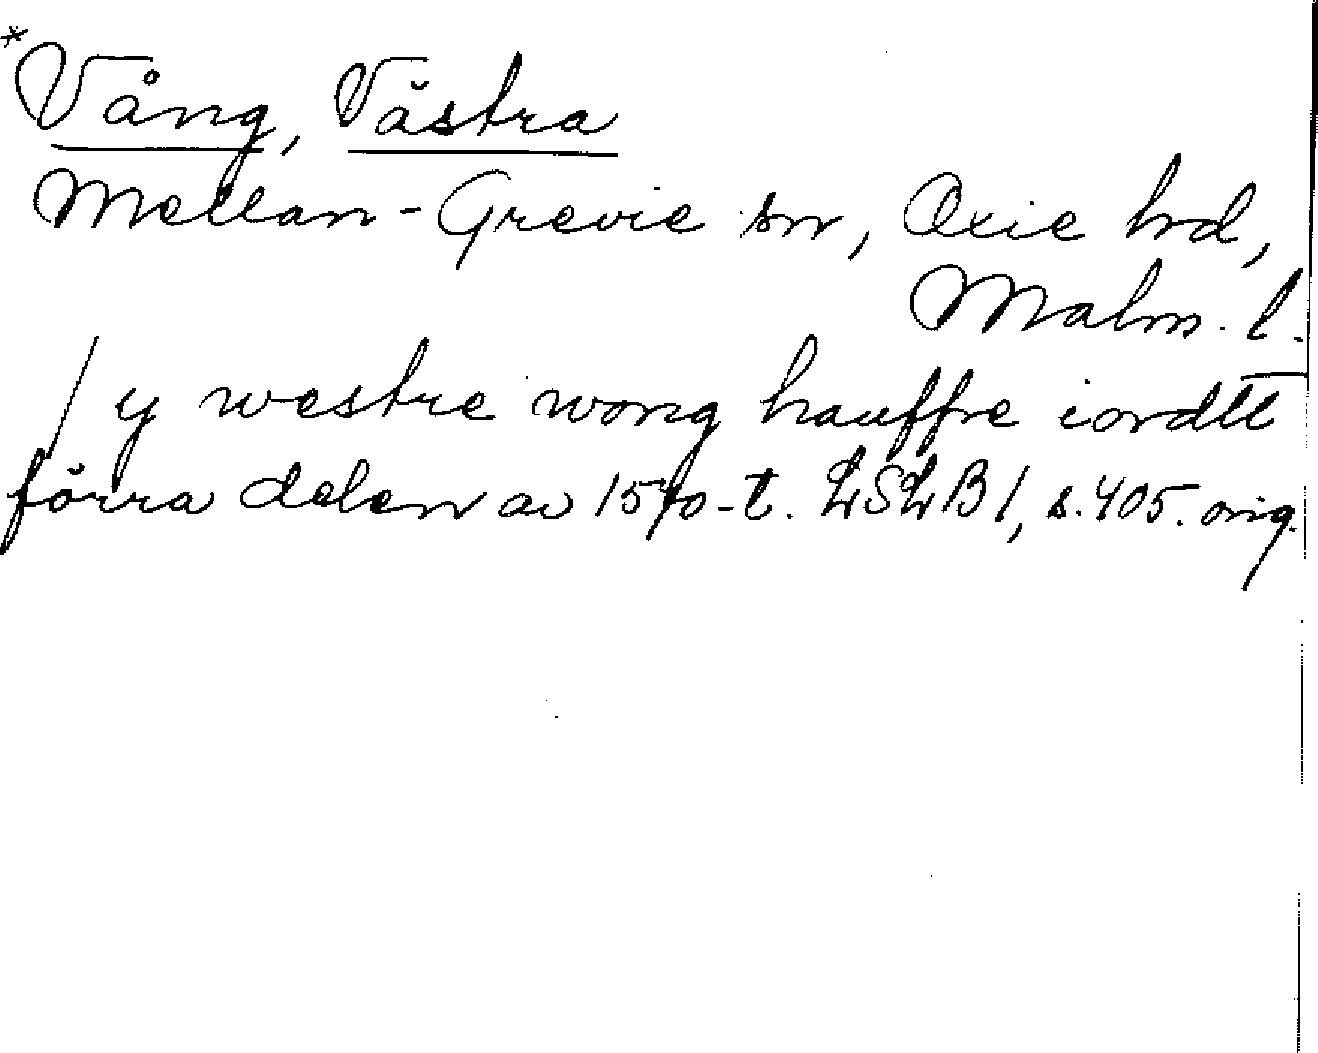 *Vång, Västra
Mellan-Grevie sn, Oxie hd,
Malm. l.
/ y westre wong hauffre iordtt
förra delen av 1570-t. LSLB1, s. 405. orig.